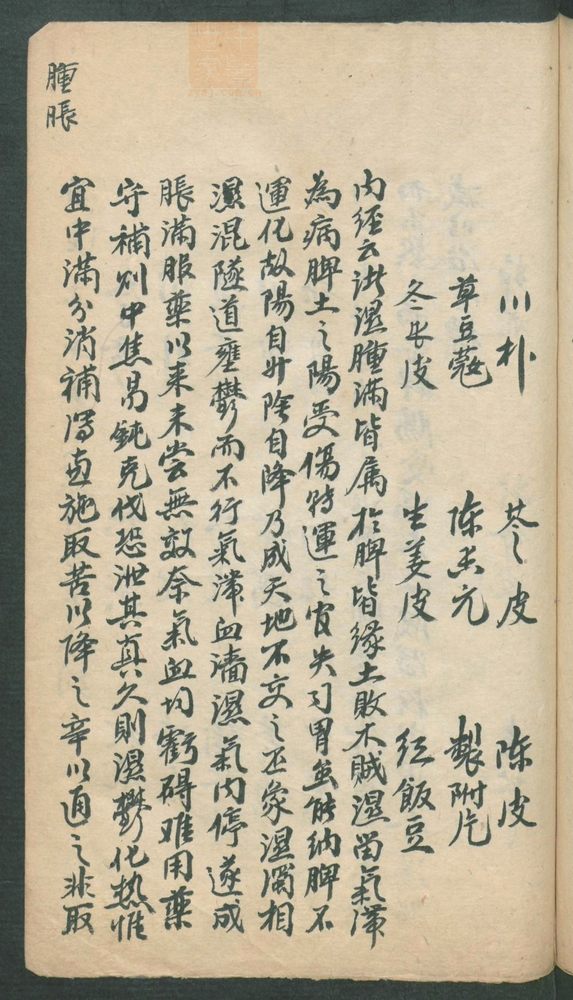 川朴 苓皮 陳皮
草豆蔻 陈香元 製附片
冬瓜皮 生姜皮 红飯豆
内经云諸濕腫滿皆属於脾皆缘土敗木贼濕留氣滞
為病脾土之陽受傷转運之官失司胃虽能纳脾不
運化故陽自升陰自降乃成天地不交之否象濕濁相
濕混隧道壅鬱而不行氣滞血濇濕氣内停遂成
脹滿服藥以来未尝無效奈氣血均虧碍难用藥
守補则中焦易鈍克伐恐泄其真久則濕鬱化热惟
宜中滿分消補瀉直施取苦以降之辛以通之非取
腫脹